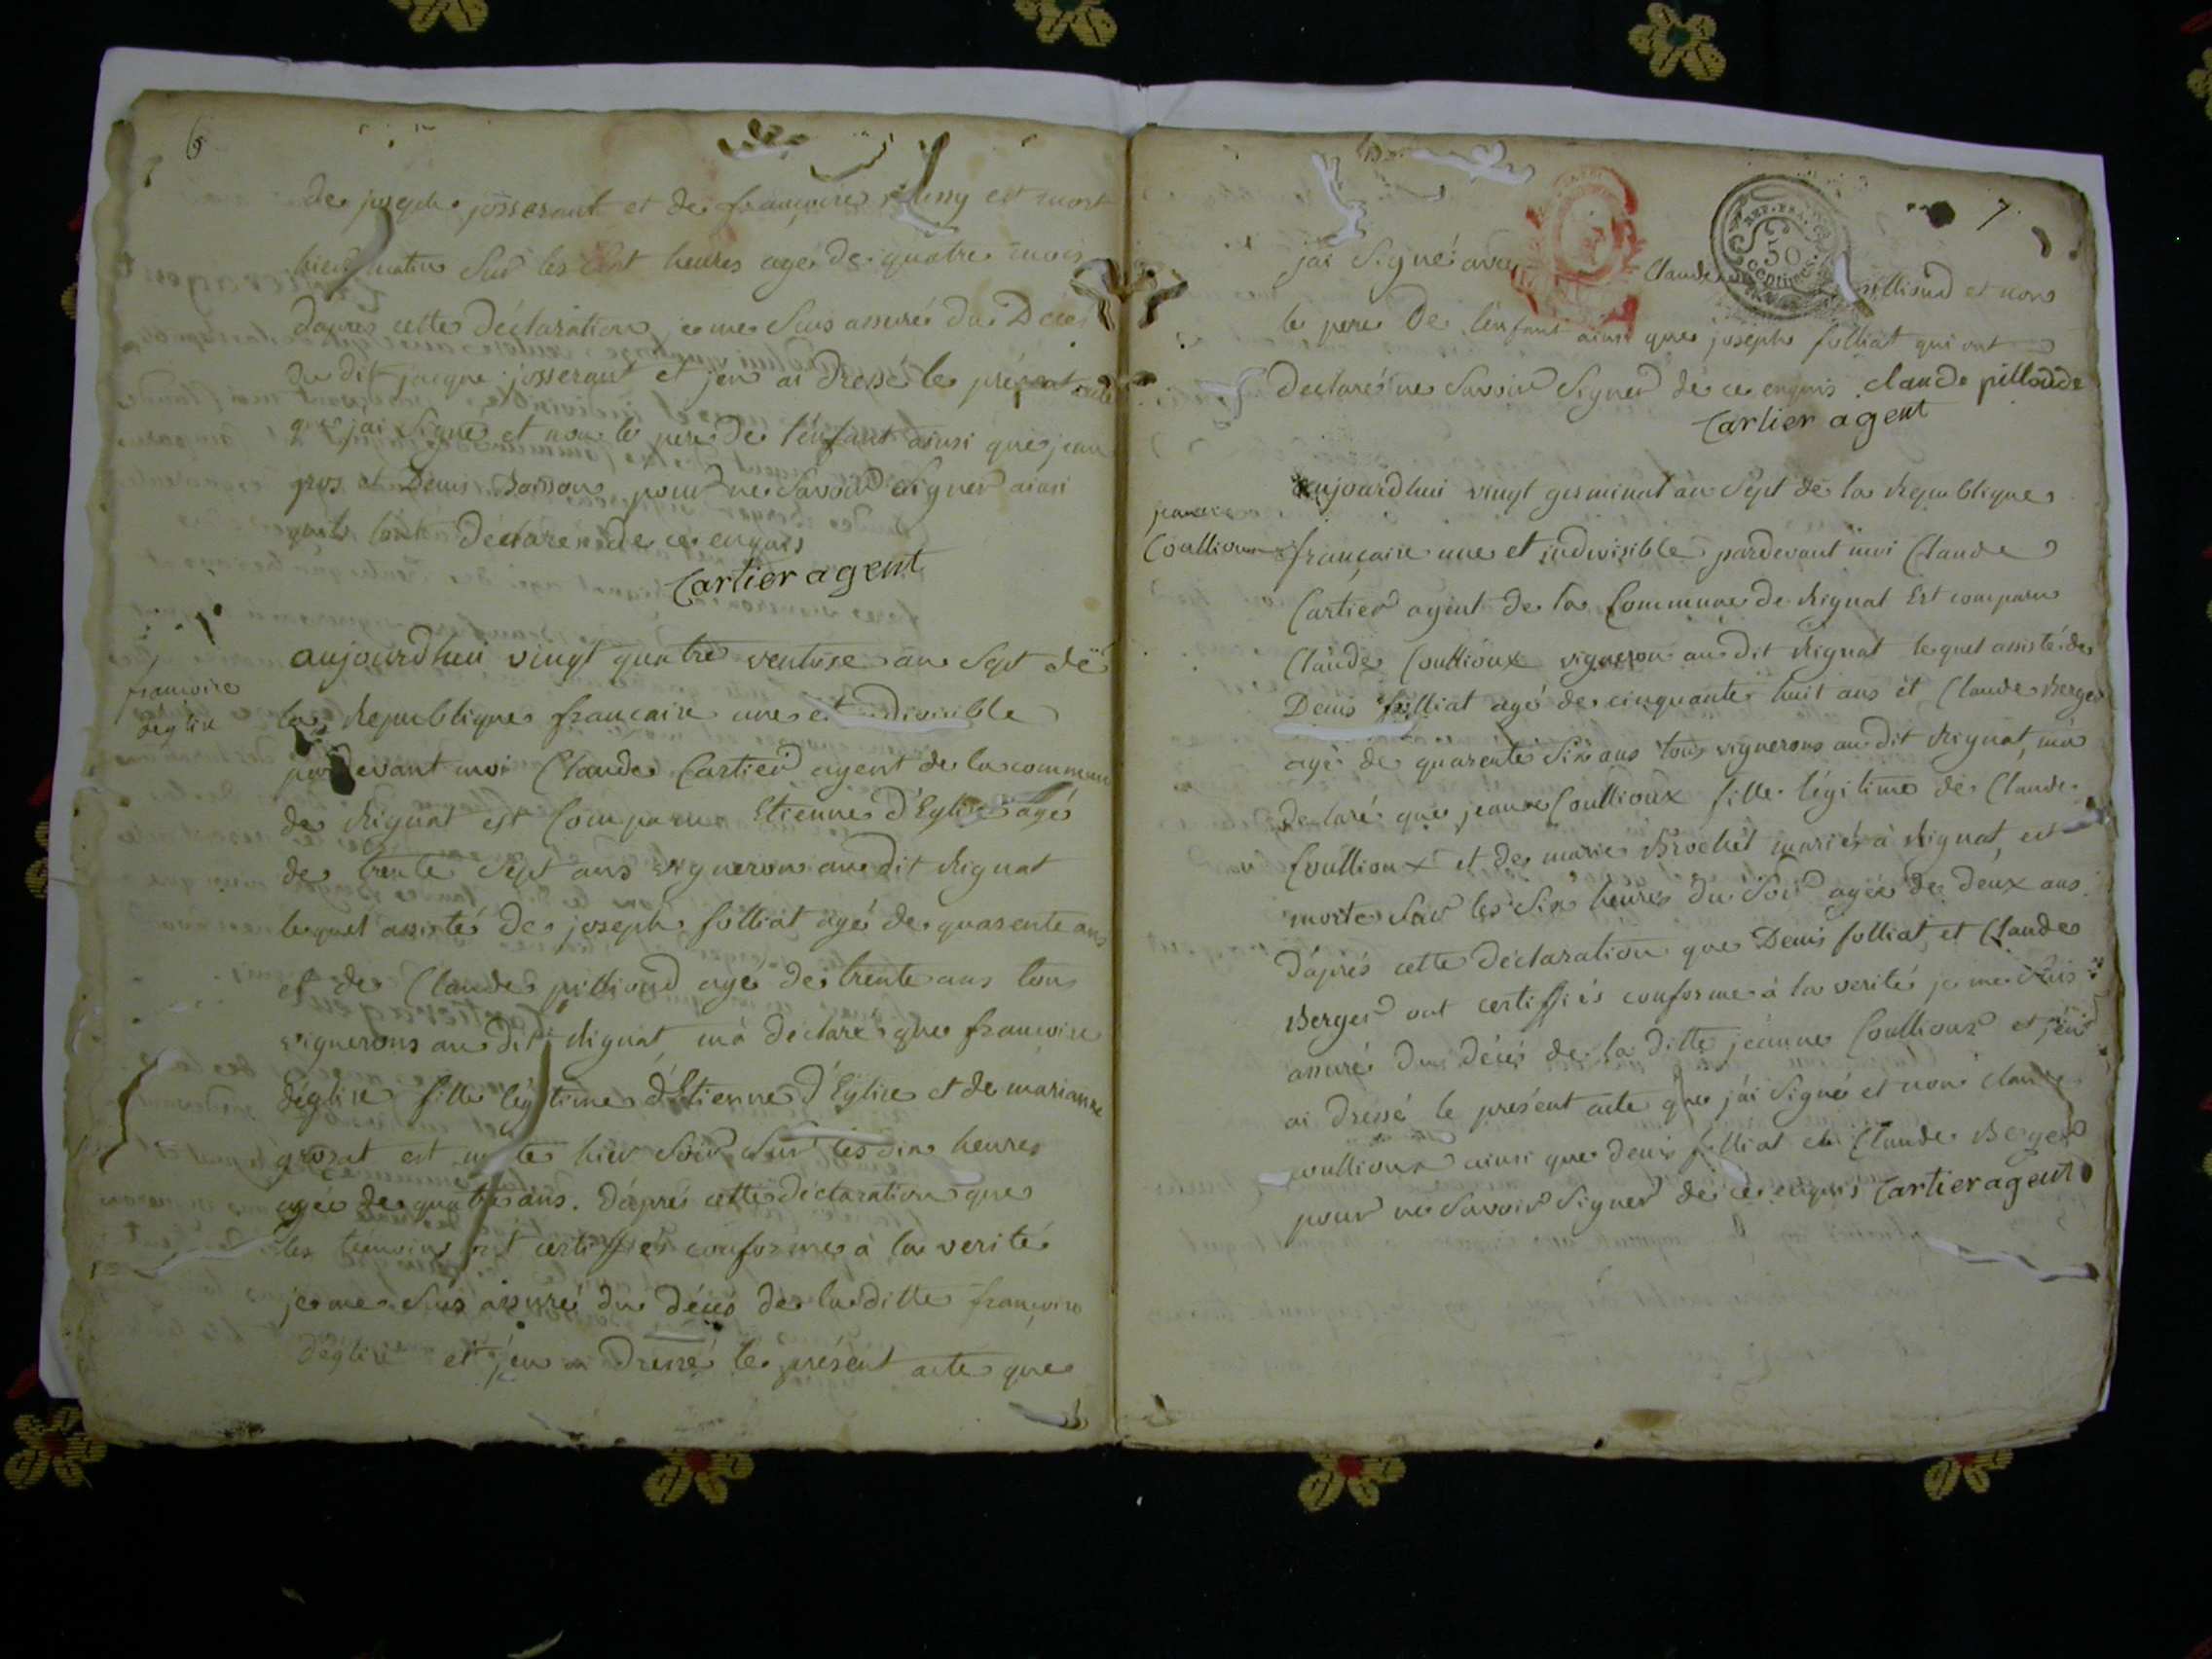 6
de joseph josserant et de françoise est mort
hier matin Sur les Sept heures agé de quatre mois
dapres cette déclaration je me Suis assuré du Décés
du dit jacque josserant et jen ai dressé le présent acte
que jai Signé et non le pere de l'énfant ainsi que jean
gros et Denis Boisson pour ne Savoir Signer ainsi
quils lont déclaré de ce enquis
Cartier agent
françoise
déglise
aujourdhui vingt quatre ventose an Sept de
la Republique francaise une et indivisible
pardevant moi Claude Cartier agent de la commune
de Rignat est Comparu Etienne d'Eglise agé
de trente Sept ans vigneron au dit Rignat
lequel assisté de joseph folliat agé de quarente ans
et de Claude pillioud agé de trente ans tous
vignerons au dit Rignat m'a déclaré que francoise
déglise fille légitime d'Etienne d'Eglise et de marianne
grozat est morte hier Soir Sur les dix heures
agée de quatre ans. D'aprés cette déclaration que
les témoins ont certiffiés conforme à la verité
je me Suis assuré du décés de la ditte françoise
déglise et j'en ai dressé le présent acte que
7
REP. FRA.
50
centimes
jai Signé avec Claude pillioud et non
le pere De l'enfant ainsi que joseph folliat qui ont
declarés ne Savoir Signer de ce enquis claude pilloude
Cartier agent
jeanne
Coullioux
aujourdhui vingt germinal an Sept de la Republique
française une et indivisible pardevant moi Claude
Cartier agent de la Commune de Rignat Est comparu
Claude Coullioux vigneron au dit Rignat lequel assisté de
Denis folliat agé de cinquante huit ans et Claude Berger
agé de quarente Six ans tous vignerons au dit Rignat, m'a
declaré que jeanne Coullioux fille légitime de Claude
Coullioux et de marie Brochet mariés à Rignat, est
morte Sur les Six heures du Soir agée de deux ans.
D'aprés cette déclaration que Denis folliat et Claude
Berger ont certiffiés conforme à la verité je me Suis
assuré du décés de la ditte jeanne Coullioux et j'en
ai dressé le présent acte que j'ai Signé et non claude
coullioux ainsi que denis folliat et Claude Berger
pour ne Savoir Signer de ce enquis Cartier agent